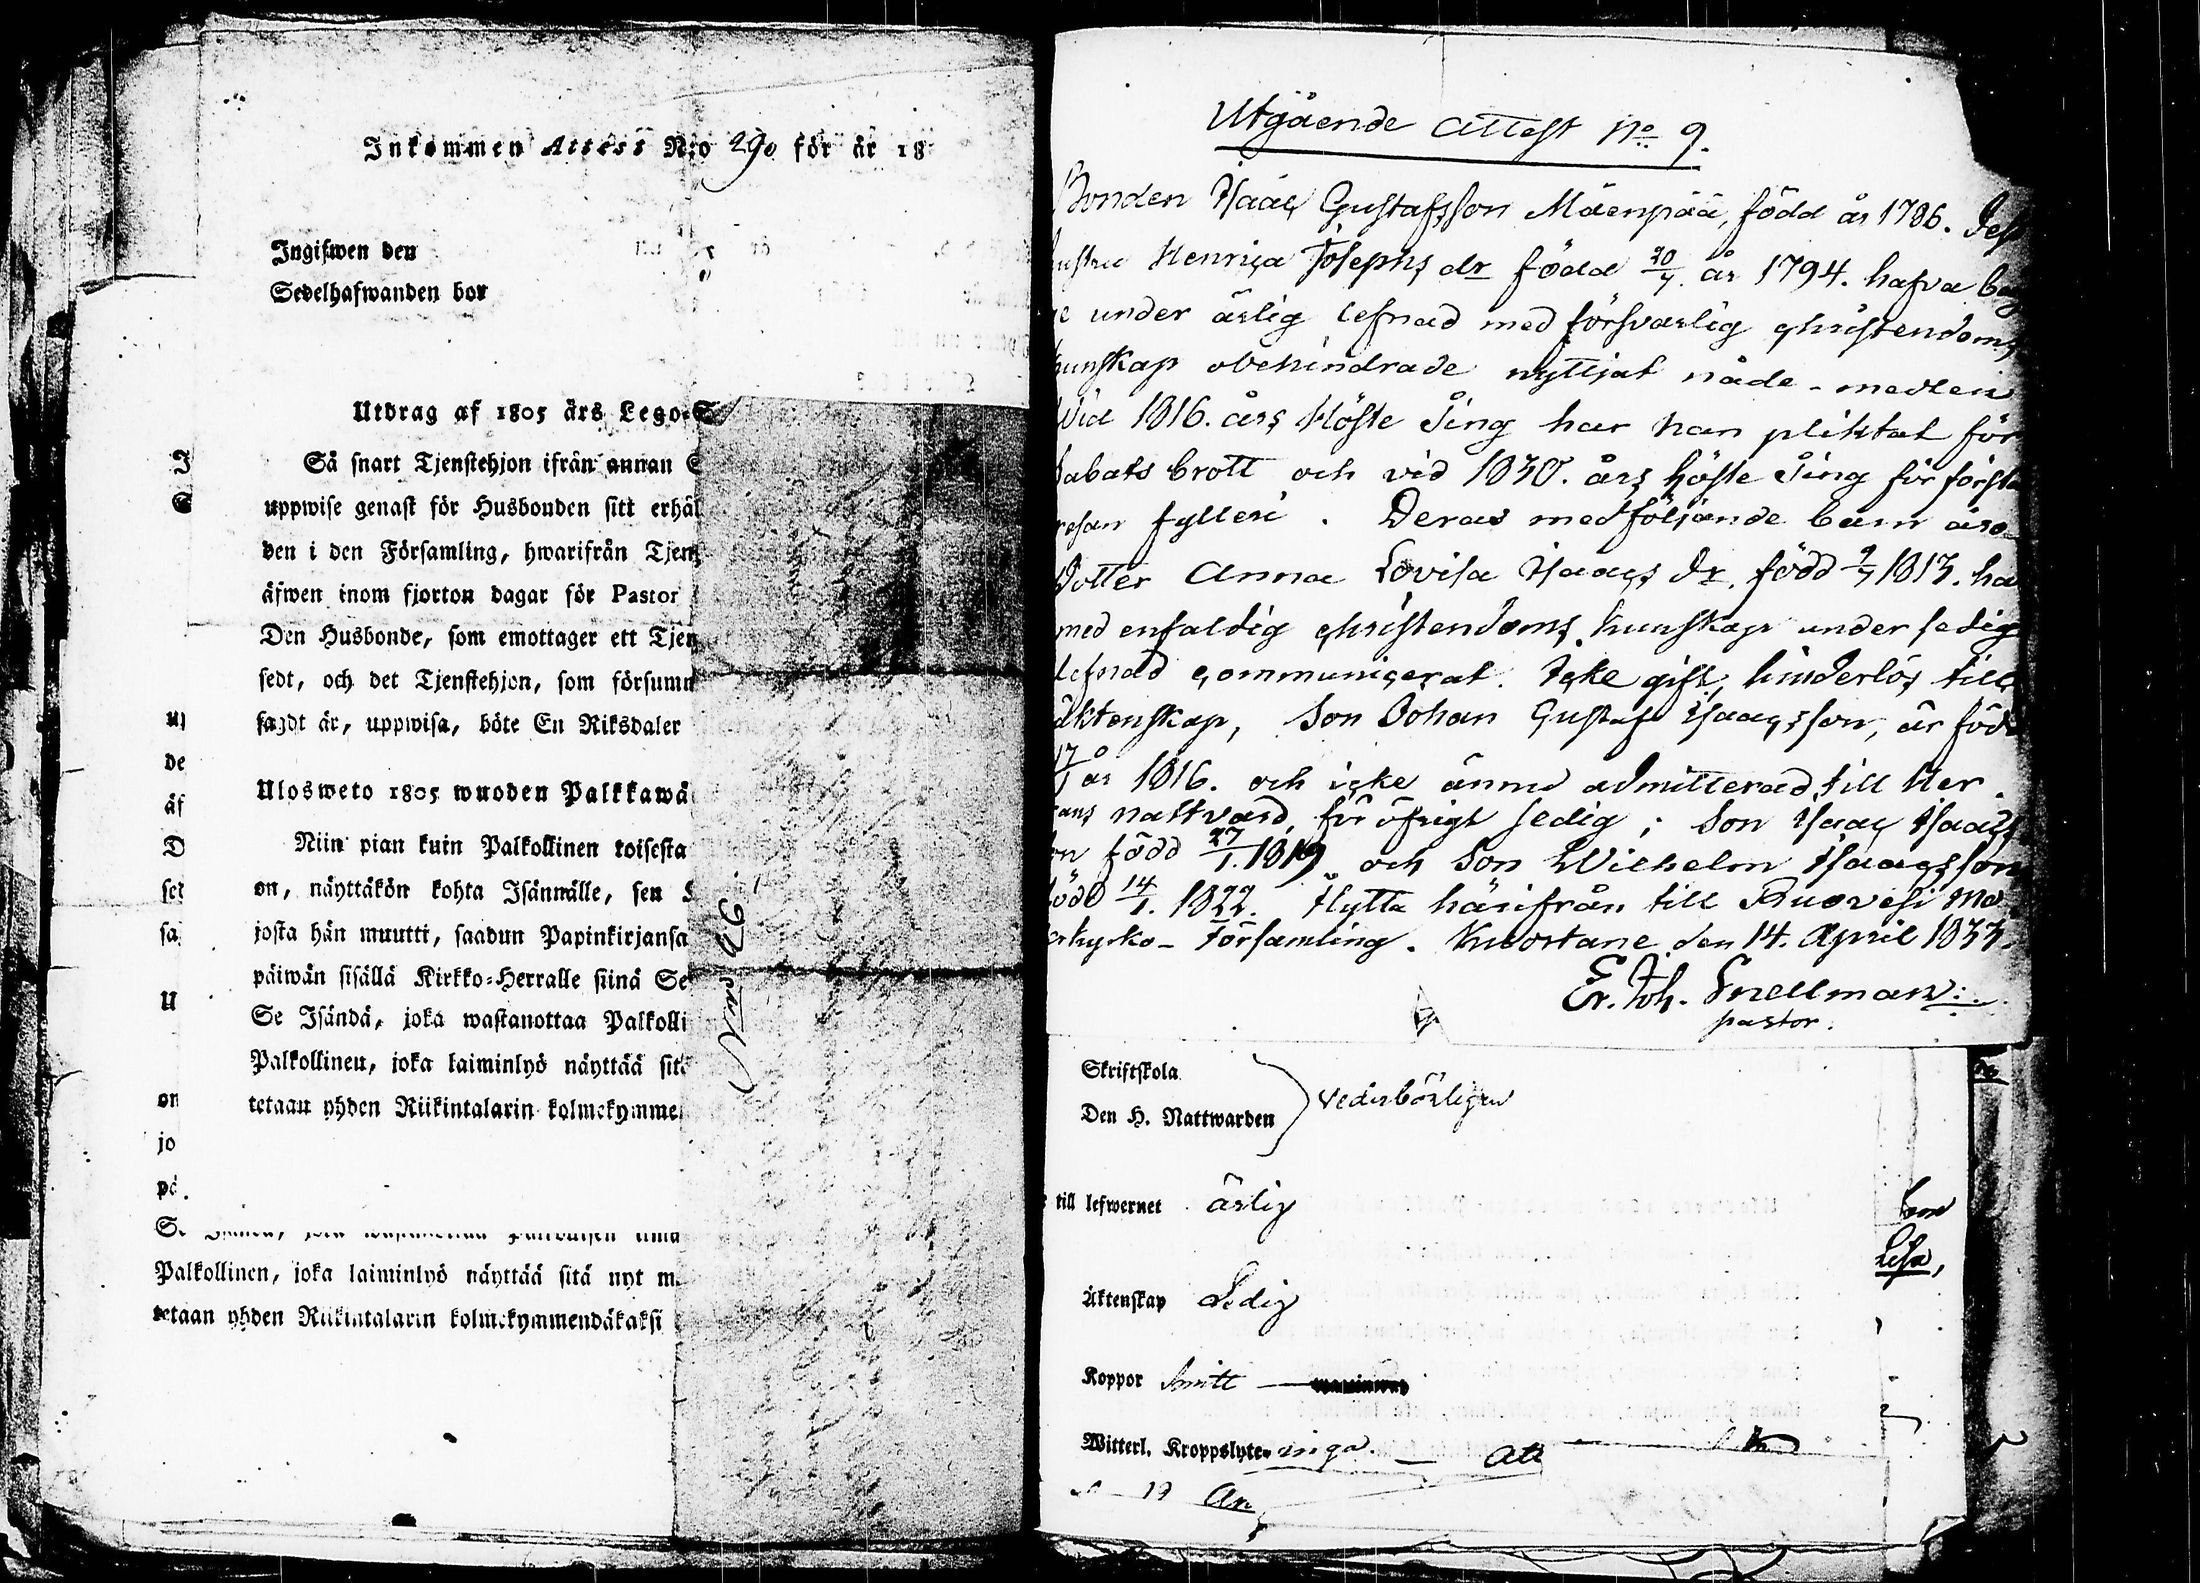 Inkommen Attest N:o 290 för år 18
Ingifwen den
Sedelhafwanden bor
Utdrag af 1805 års Lego-S
Så snart Tjenstehjon ifrån annan
uppwise genast för Husbonden sitt erhål
den i den Församling, hwarifrån Tjen
äfwen inom fjorton dagar för Pastor
Den Husbonde, som emottager ett Tjen
sedt, och det Tjenstehjon, som försumm
sagdt är, uppwisa, böte En Riksdaler
Ulosweto 1805 wuoden Palkkawä
Niin pian kuin Palkollinen toisesta
on, näyttäkön kohta Isännälle, sen
josta hän muutti, saadun Papinkirjansa
päiwän sisällä Kirkko-Herralle siinä Se
Se Isändä, joka wastanottaa Palkolli
Palkollinen, joka laiminlyö näyttää sitä
tetaan yhden Riikintalarin kolmekymme
J
S
up
de
äf
D
sed
sa
U
on
jo
pä
Se
Palkollinen, joka laiminlyö näyttää sitä nyt m
tetaan yhden Riikintalarin kolmekymmendäkaksi
Utgående attest No 9.
Bonden Isaac Gustafsson Mäenpää, född år 1786. Dess
hustru Henrica Josephs dr född 20/7 år 1794. hafva beg
e under ärlig lefnad med försvarlig christendoms
kunskap obehindrade nyttjat nåde-medlen
Vid 1816. års Höste Ting har han pliktat för
sabats brott och vid 1830. års höste Ting för första
resan fylleri. Deras medföljande barn äro
Dotter Anna Lovisa Isaacs dr. född 9/7 1813. ha
med enfaldig christendoms kunskap under sedig
lefnad communicerat. Icke gift, hinderlös till
äktenskap, Son Johan Gustaf Isaacsson, är född
17/1 år 1816. och icke ännu admitterad till Her
rans nattvard, för öfrigt sedig; Son Isaac Isaacs
on född 27/1. 1819 och Son Wilhelm Isaacsson
född 14/1. 1822. Flytta härifrån till Ruovesi Mo
erkyrko-Församling. Kuortane den 14. April 1833.
Er. Joh. Snellman
pastor.
Skriftskola
Den H. Nattwarden
vederbörligen
till lefwernet ärlig
Äktenskap Ledig
Koppor haft
Witterl. Kroppslyten inga. Att
19 An
Lisa,